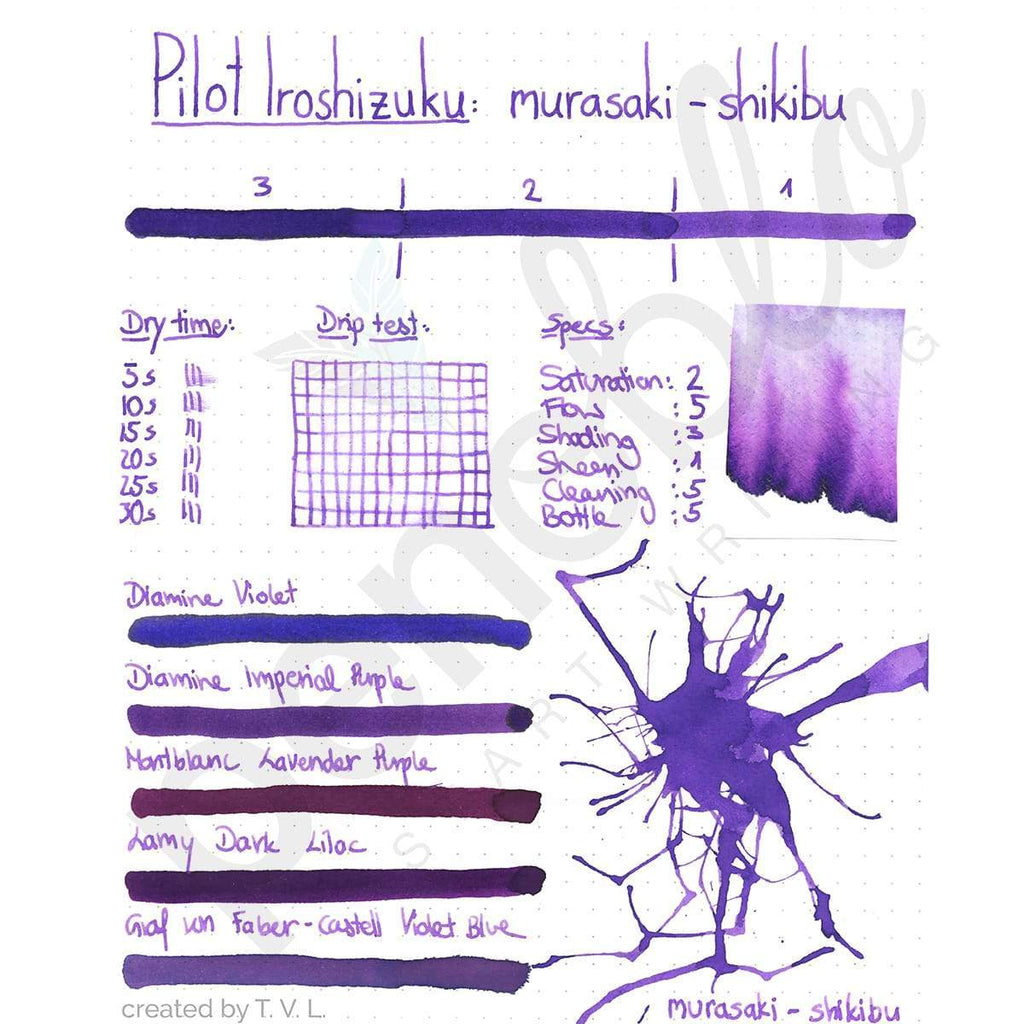 Pilot Iroshizuku: murasaki - shikibu
3 2 1
Dry time:
5s
10s
15s
20s
25s
30s
Drip test:
Specs:
Saturation: 2
Flow : 5
Shading : 3
Sheen : 1
Cleaning : 5
Bottle : 5
Diamine Violet
Diamine Imperial Purple
Montblanc Lavender Purple
Lamy Dark Lilac
Graf von Faber-Castell Violet Blue
murasaki - shikibu
created by T. V. L.
penoblo
SMART WRITING